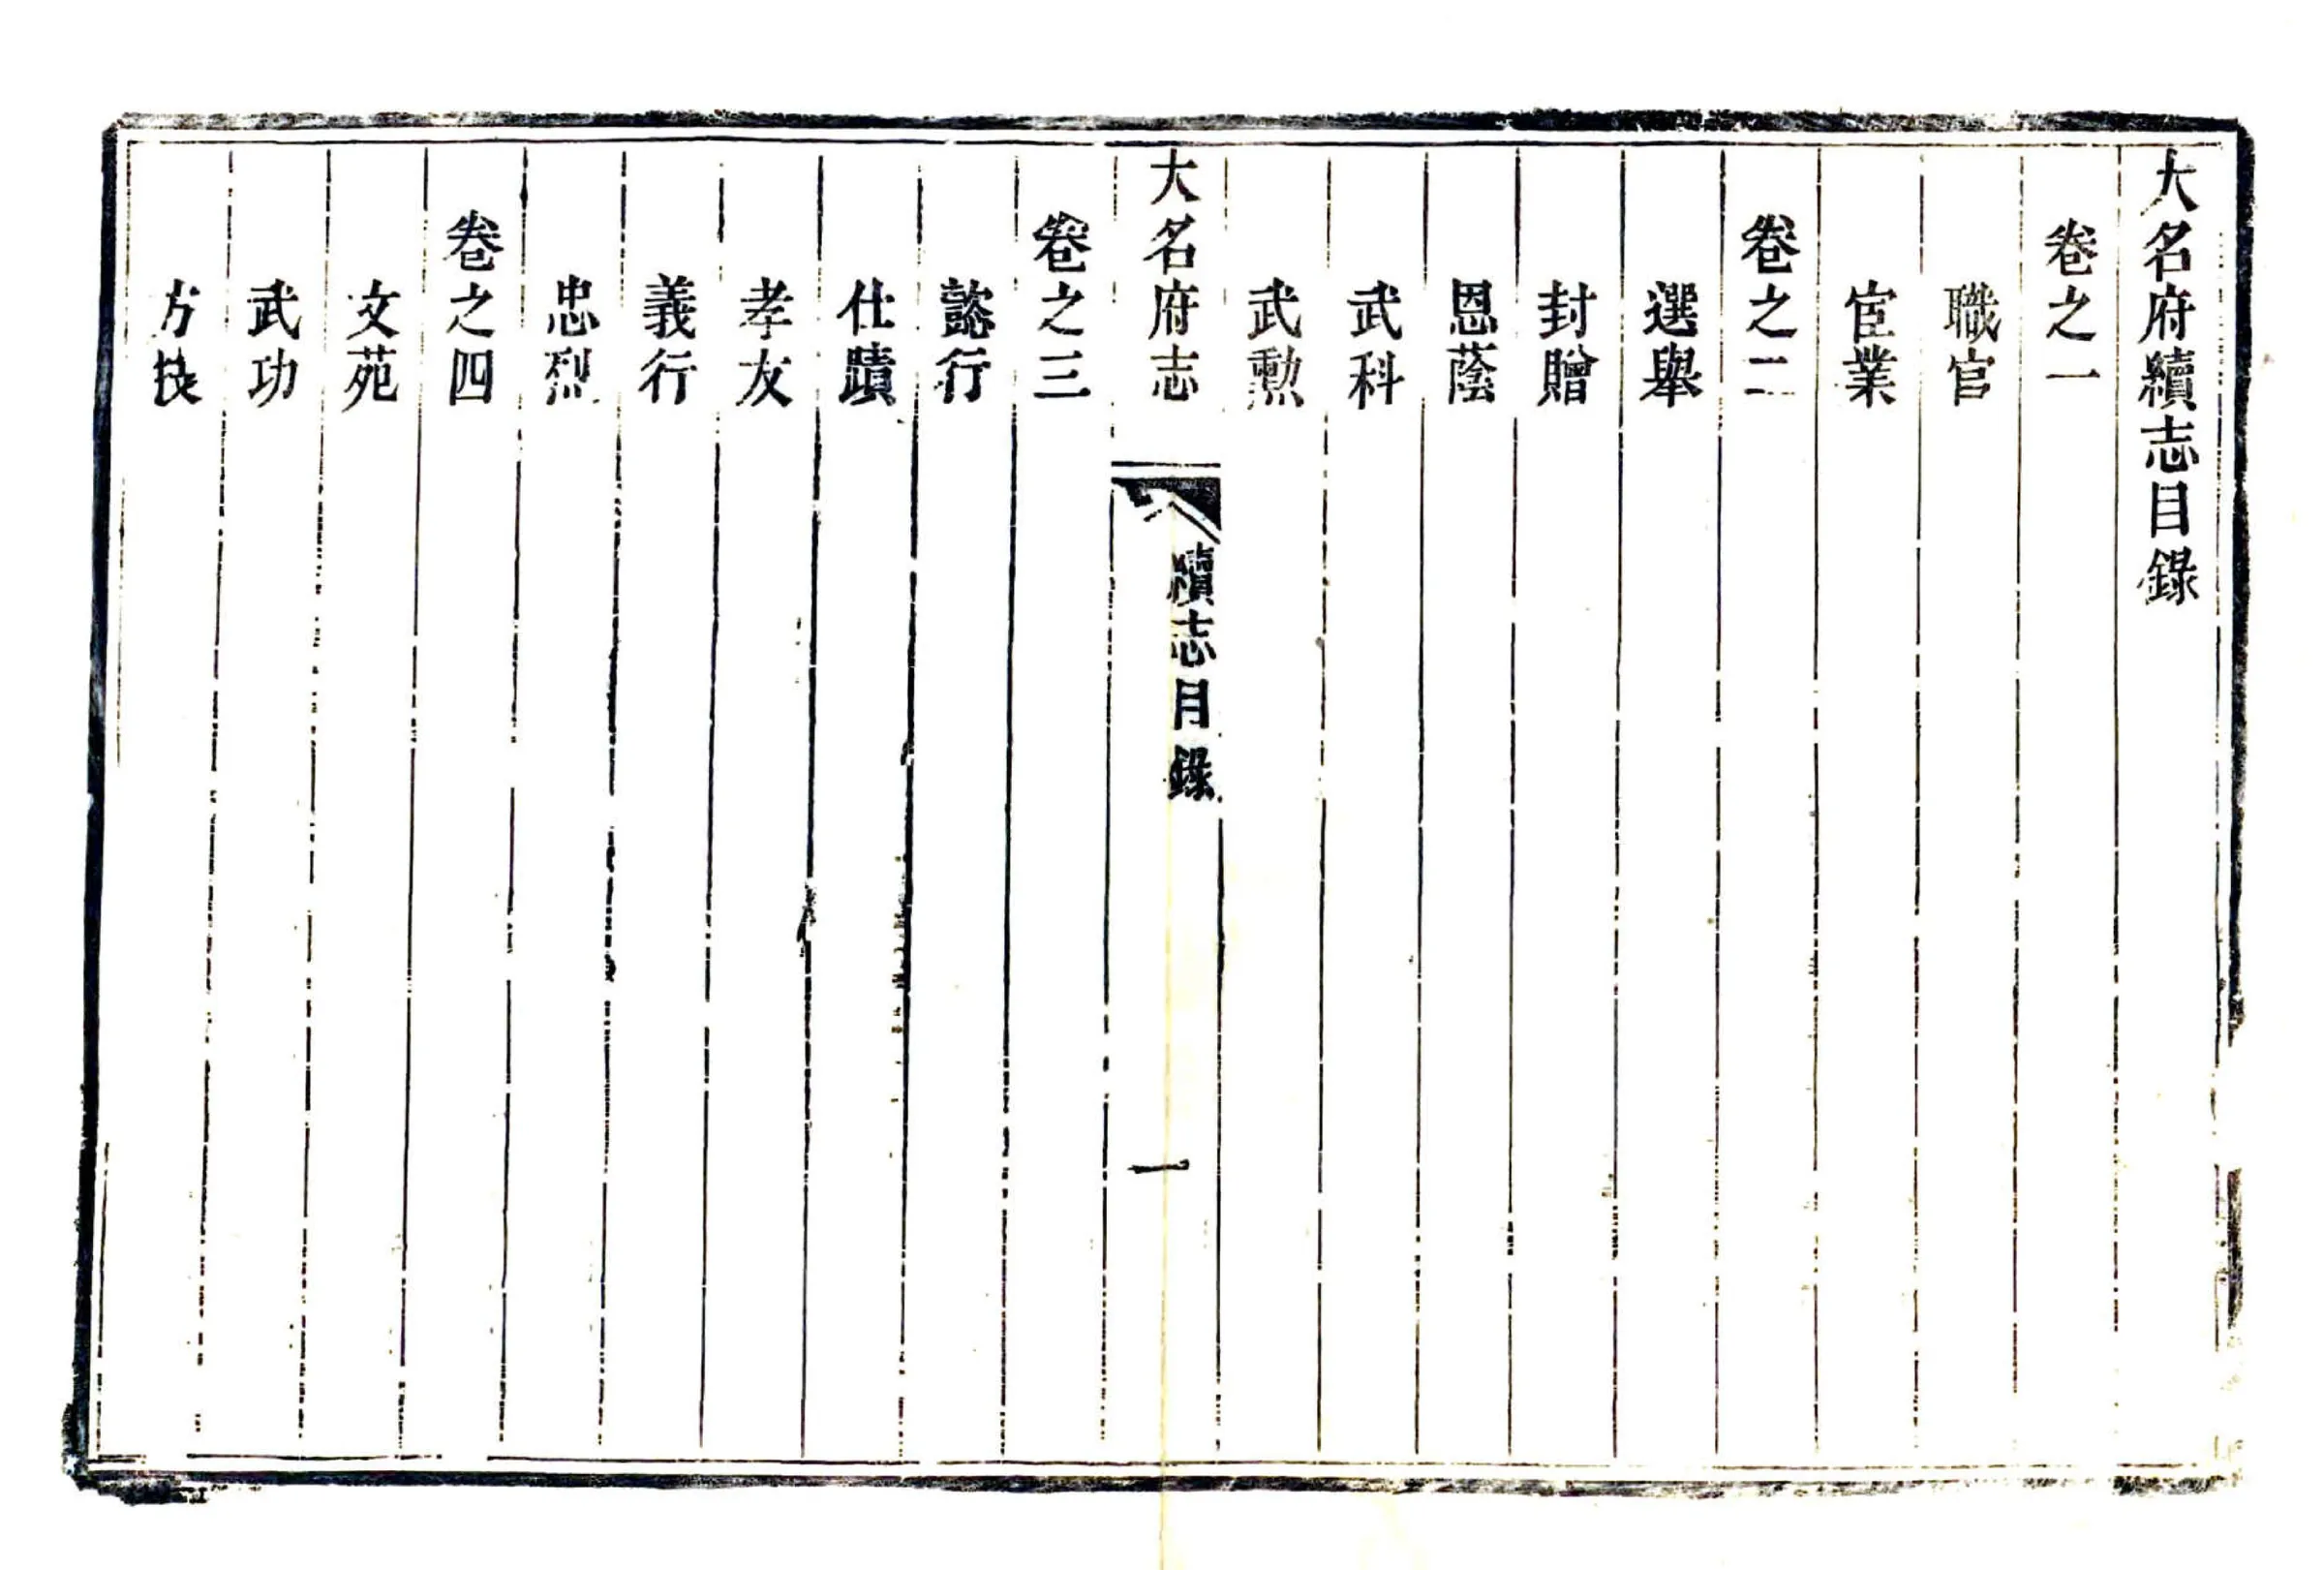 大名府續志目錄
卷之一
職官
宦業
卷之二
選舉
封贈
恩蔭
武科
武勲
大名府志
續志目錄
一
卷之三
懿行
仕蹟
孝友
義行
忠烈
卷之四
文苑
武功
方技